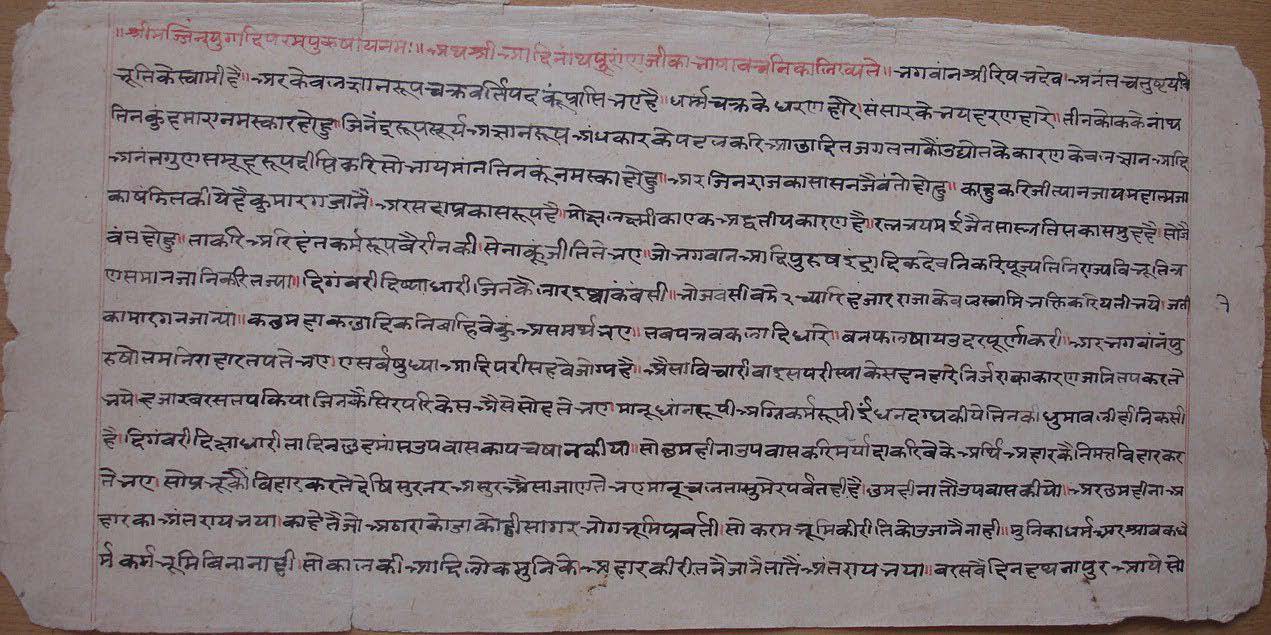 ॥श्रीमज्जिनयुगादिपरमपुरुषायनमः॥अथश्रीआदिनाथपुराणजीकाभाषावचनिकालिख्यते॥भगवांनश्रीरिषभदेवअनंतचतुष्टयवि
भूतिकेस्वामीहै॥अरकेवलज्ञानरूपचक्रवर्तिपदकूंप्राप्तिभएहै॥धर्मचक्रकेधरणहारेसंसारकेभयहरणहारे॥तीनलोककेनाथ
तिनकुंहमारानमस्कारहोहु॥जिनेंद्ररूपसूर्यअज्ञानरूपअंधकारकेपटलकरिआछादितजगतताकौंउद्योतकेकारणकेवलज्ञानआदि
अनंतगुणसमूहरूपदीप्तिकरिसोभायमांनतिनकूंनमस्काहोहु॥अरजिनराजकासासनजैवंतोहोहु॥काहुकरिजीत्यानजायमहात्मजा
काषंमितकीयेहैकुमारगजानै॥अरसहाप्रकासरूपहै॥मोक्षलक्ष्मीकाएकअद्वतीयकारणहै॥रत्नत्रयमईजैनसास्त्रतिसकासमुहहै॥सोजै
वंतहोहु॥ताकरिअरिहंतकर्मरूपवैरीनकीसेनाकूंजीतितेभए॥जोभगवानआदिपुरुषइंद्रादिकदेवनिकरिपूज्यतिनिराज्यविभूतित्र
एसमानजानिकरितज्या॥दिगंबरीदिष्याधारीजिनकैलारइष्वाकंबंसीभोजवंसीबमेरच्यारिहंजारराजाकेवलस्वामिभक्तिकरियतीभये॥जती
कामारगनजान्या॥कठमहाकछादिकनिबाहिवेकुंअसमर्थभए॥सबपत्रवकलादिधारे॥बनफलषायउदरपूर्णाकरी॥अरभगवांनपु
रुषोतमनिराहारतपतेभए॥एसर्वषुध्याआदिपरीसहवेजोग्यहै॥अैसाविचारीबाइसपरीस्याकेसहनहारेनिर्जराकाकारणजानितपकरते
भये॥हजारबरसतपकियाजिनकैसिरपरिकेसअैसेसोहतेभएमानूध्यांनरूपीअग्निकर्मरूपीईंधनदग्धकीयेतिनकीधुमावलीहीनिकसी
है॥दिगंबरीदिक्षाधारीतादिनछहमांसउपवासकायचषानकीया॥सोछमहीनाउपवासकरिमर्यादाकरिवेकेअर्थिअहारकैनिमत्तविहारकर
तेभए॥सोप्रभूकौंविहारकरतेदेषिसुरनरअसुरअैसाजाएतेभएमानूचलतासुमेरपर्वतहीहै॥छमहीनातौउपवासकीयो॥अरछमहीनाअ
हारकाअंतरायभया॥काहेतैजोअठाराकोडाकोडीसागरभोगभूमिप्रवर्ती॥सोकरमभूमिकीरीतिकोउजानैनाही॥मुनिकाधर्मअरश्रावकध
र्मकर्मभूमिविनानाही॥सोकालकीआदिलोकमुनिकोअहारकीरीतनैजानैतातैंअंतरायभया॥बरसवैदिनहथनापुरआयेसो
१